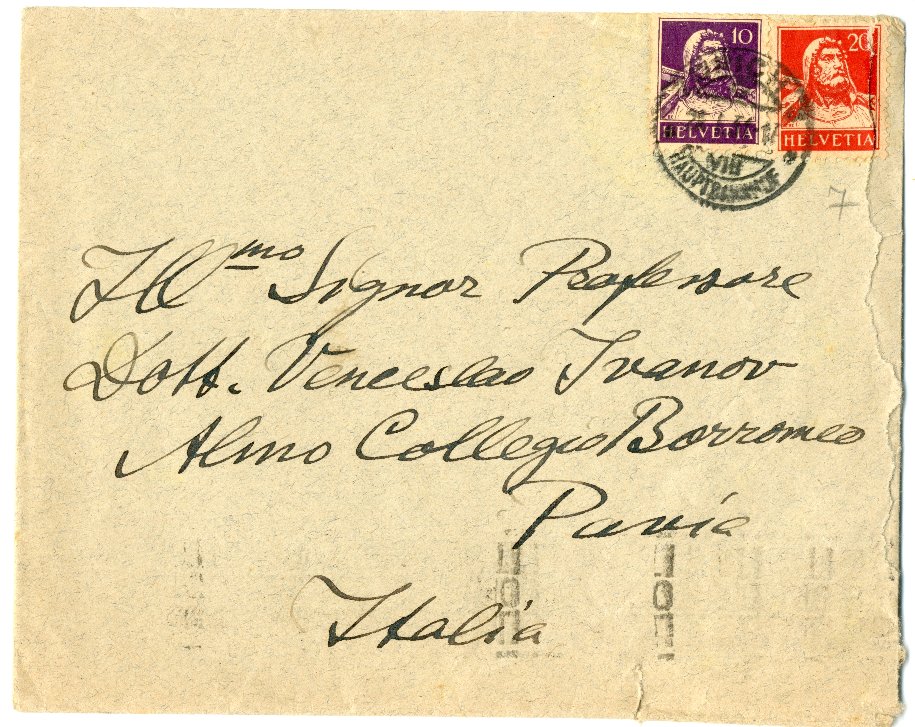 10 20
HELVETIA HELVETIA
VIII
HAUPTBAHNHOF
7
Ill<sup>mo</sup> Signor Professore
Dott. Venceslao Ivanov
Almo Collegio Borromeo
Pavia
Italia